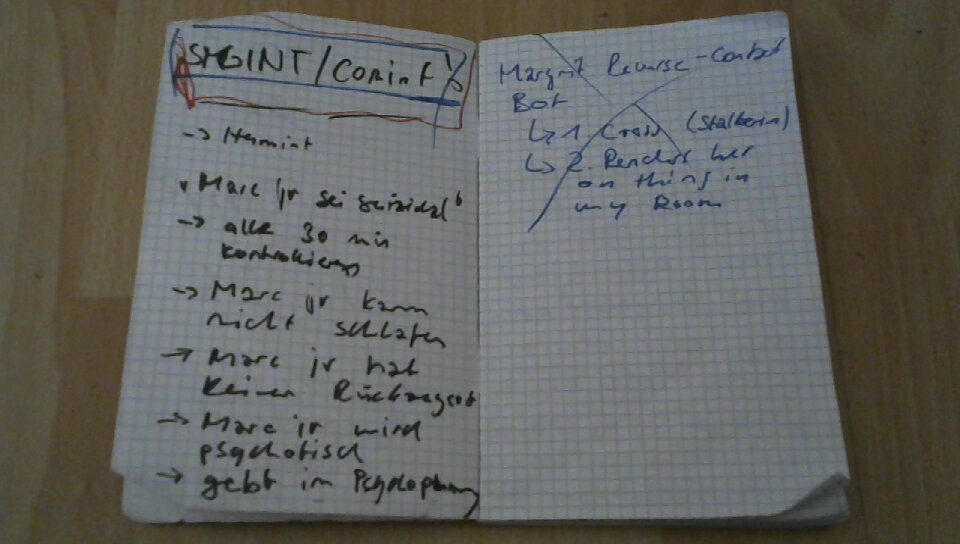 SIGINT/Comint
→ Humint
Marc jr sei suizidal
→ alle 30 min
kontrollieren
→ Marc jr kann
nicht schlafen
→ Marc jr hat
keinen Rückzugsort
→ Marc jr wird
psychotisch
→ gebt im
Margrit Reverse-Contact
Bot
↳ 1. (Stalkerin)
↳ 2. her
on thing in
my Room